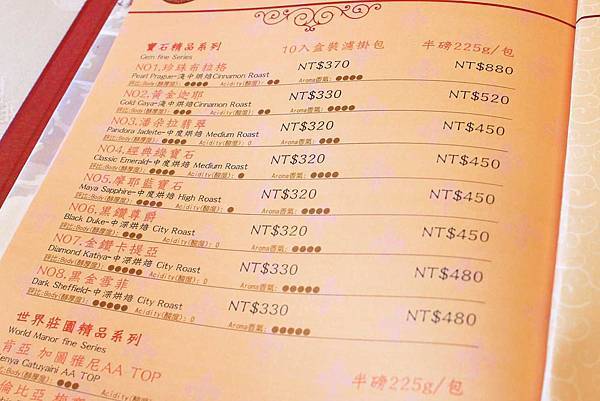 寶石精品系列 10入盒裝濾掛包 半磅225g/包
Gem fine Series
NO1.珍珠布拉格 NT$370 NT$880
Pearl Prague-淺中烘焙Cinnamon Roast
評比:Body(醇厚度): ●●●● Acidity(酸度): ●● Aroma香氣: ●●●●
NO2.黃金迦耶 NT$330 NT$520
Gold Gaya-淺中烘焙Cinnamon Roast
評比:Body(醇厚度): Acidity(酸度): Aroma香氣: ●●●●
NO3.潘朵拉翡翠 NT$320 NT$450
Pandora Jadeite-中度烘焙 Medium Roast
評比:Body(醇厚度): Acidity(酸度): Aroma香氣: ●●●
NO4.經典綠寶石 NT$320 NT$450
Classic Emerald-中度烘焙 Medium Roast
評比:Body(醇厚度): ●●●● Acidity(酸度): ● Aroma香氣: ●●●●
NO5.摩耶藍寶石 NT$320 NT$450
Maya Sapphire-中度烘焙 High Roast
評比:Body(醇厚度): ●●●● Acidity(酸度): ● Aroma香氣: ●●●●
NO6.黑鐵尊爵 NT$320 NT$450
Black Duke-中深烘焙 City Roast
評比:Body(醇厚度): ●●● Acidity(酸度): 0 Aroma香氣: ●●●●
NO7.金鐵卡提亞 NT$330 NT$480
Diamond Katiya-中深烘焙 City Roast
評比:Body(醇厚度): ●●●●● Acidity(酸度): 0 Aroma香氣: ●●●●●
NO8.黑金雪菲 NT$330 NT$480
Dark Sheffield-中深烘焙 City Roast
評比:Body(醇厚度): ●●●●● Acidity(酸度): 0 Aroma香氣: ●●●●●
世界莊園精品系列
World Manor fine Series
肯亞 加圖雅尼AA TOP 半磅225g/包
enya Gatuyaini AA TOP
評比:Body(醇厚度): ●●●
倫比亞